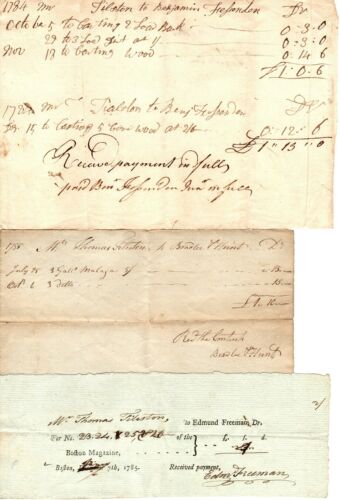 1784 Mr Tileston to Benjamin Fessenden Dr
Octobe 5 to Carting 2 Load Bark 0..3..0
29 to 3 Load Dirt at 1/ 0:3:0
Nov 13 to Carting Wood 0:14 6
£1:0..6
Mr Tileston to Benj Fessenden Dr
15 to Carting Wood at 2/6 0:12:6
£1"13"0
Receive payment in full
Benj Fessenden in full
Mr Thomas Tileston to Bradlee & Hunt Dr
July 3 Galls Malaga
Octo 6 3 Ditto 15
£1.10
Recd the Contents
Bradlee & Hunt
2/
Mr. Thomas Tileston, to Edmund Freeman, Dr.
For No. 23.24. & 25 & 26 of the l. s. d.
Boston Magazine,
Boston, 7th, 1785. Received payment,
Edm Freeman